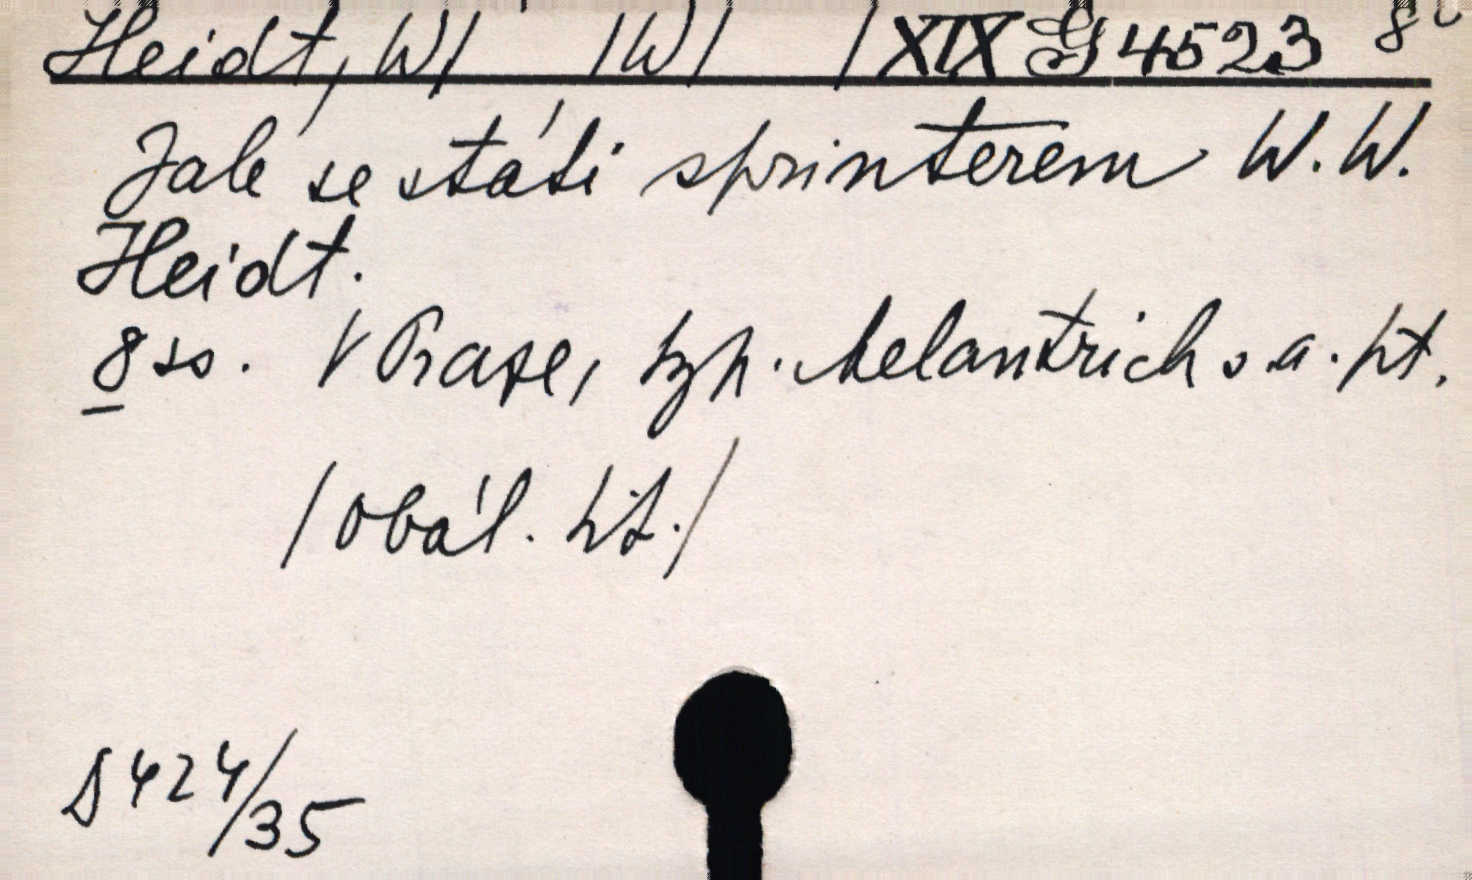 Heidt, W/ /W/ / XIX G 4523 8°
Jak se státi sprinterem W. W.
Heidt.
8 ss. V Praze, typ. Melantrich s. a. pt.
/obál. tit./
S 424/35